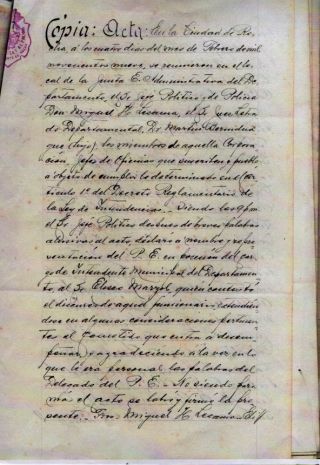 Cópia: Acta: En la Ciudad de Ro-
cha, á los cuatro días del mes de Febrero de mil
novecientos nueve, se reunieron en el lo-
cal de la Junta E. Administrativa del De-
partamento, el Sr. Jefe Político y de Policía
Don Miguel H. Lezama, el Sr.
do Departamental, Dr. Martín
los miembros de aquella Corpo-
racion, Jefes de Oficinas que suscriben y pueblo
á objeto de cumplir lo determinado en el ar-
tículo 1º del Decreto Reglamentario de
la Ley de Intendencias. Siendo las 9 p.m.
el Sr. Jefe Político despues de breves palabras
alusivas al acto, declaró á nombre y repre-
sentación del P. E. en posesión del car-
go de Intendente Municipal del Departamen-
to, al Sr. Eliseo Marzol, quien contestó
el discurso de aquel funcionario, extendién-
dose en algunas consideraciones pertinen-
tes al cometido que entra á desem-
peñar y agradeciendo á la vez en lo
que le era personal las palabras del
Delegado del P. E. No siendo para
mas el acto se labró y firmó la pre-
sente. Fdo. Miguel H. Lezama